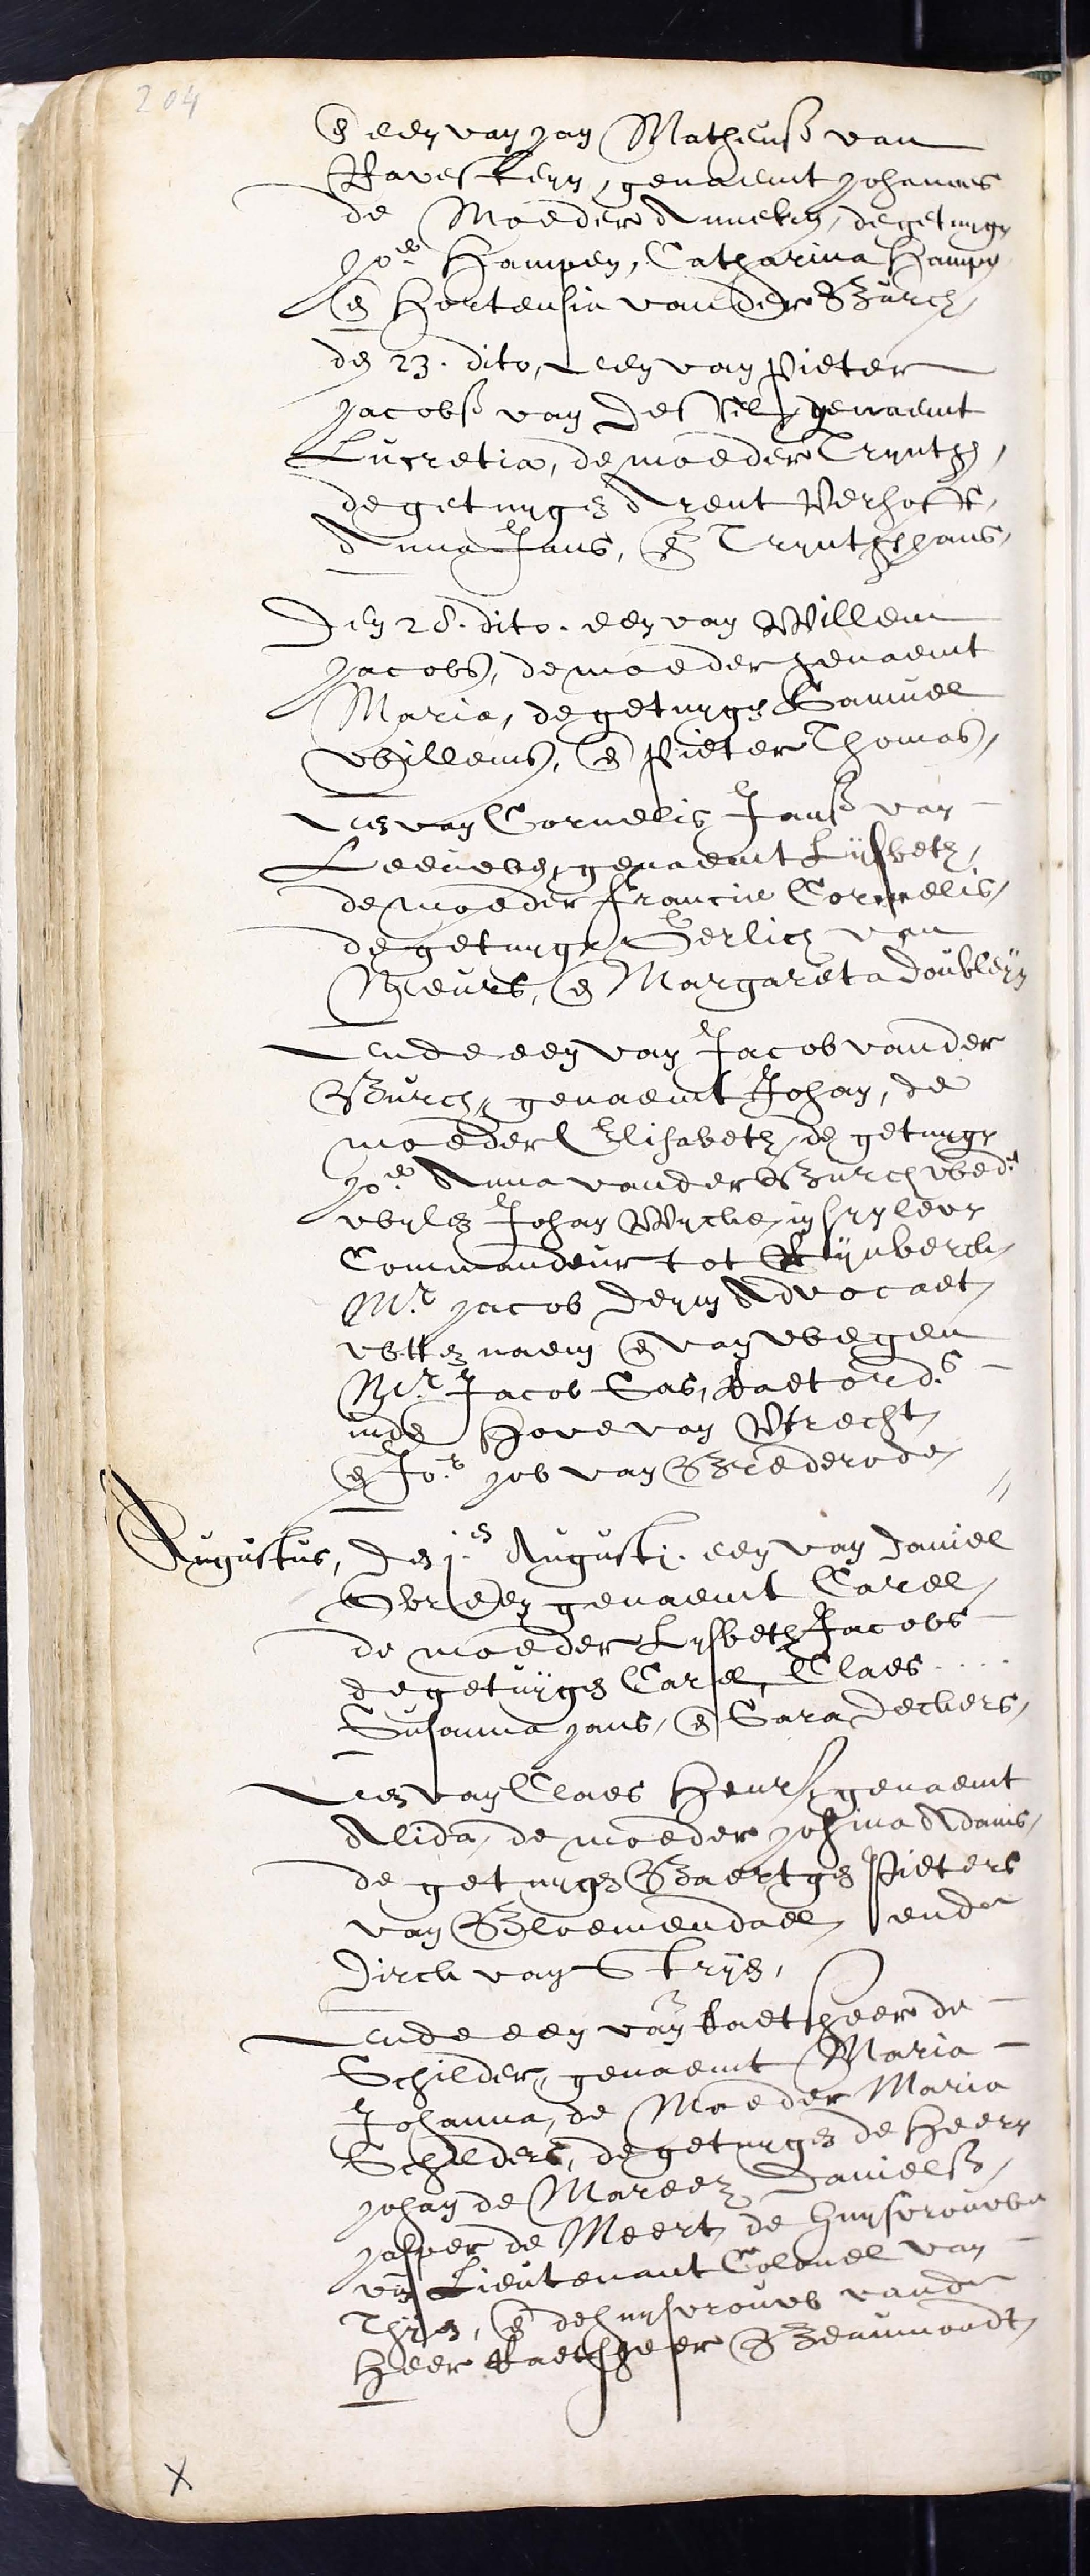 204
en een van Jan Matheuss van
Ravesteyn, genaemt Johannes
de Moeder Anneken, de getuygen
Jo.e Hampen, Catharina Hampen
en Hortensia vander Burch,
den 23. dito, een van Pieter
Jacobss van Delf, genaemt
Lucretia, de moeder Tryntgen,
de getuygen Arent Verhoff,
Anna Jans, en Tryntge Jans,
Den 28. dito. een van Willem
Jacobs, de moeder genaemt
Maria, de getuygen Samuel
Willems, en Pieter Thomas,
een van Cornelis Janss van
Leeuwen, genaemt Lijsbeth,
de moeder Francine Cornelis,
de getuygen Gerlich van
Meurs, en Margareta Doubleijn
ende een van Jacob vander
Burch, genaemt Johan, de
moeder Elisabeth, de getuygen
Jo.e Anna vander Burch wed.e
wylen Johan Wycke, in syn leven
Commandeur tot Rijnberck,
M.r Jacob Deyn Advocaet,
uutten naem en van wegen
M.r Jacob Gas, Raet ord.s
inde Hove van Utrecht,
en Jo.r Job van Brederode,
Augustus, Den 1.en Augusti. een van Daniel
genaemt Carel,
de moeder Lysbeth Jacobs
de getuijgen Carel, Claes ....
Susanna Jans, en Sara Deckers,
een van Claes Henrss, genaemt
Alida, de moeder Josina Adams,
de getuygen Baertgen Pieters
van Bloemendael, ende
Dirck van Stryen,
ende een van Raetsheer de
Schilder, genaemt Maria
Johanna, de Moeder Maria
Schilders, de getuygen de Heeren
Johan de Mareez Danielss,
Jasper de Meert, de huysvrouwe
van Lieutenant Colonel van
Thijen, en de huysvrouw vande
Heer Raetsheer Beaumondt,
X